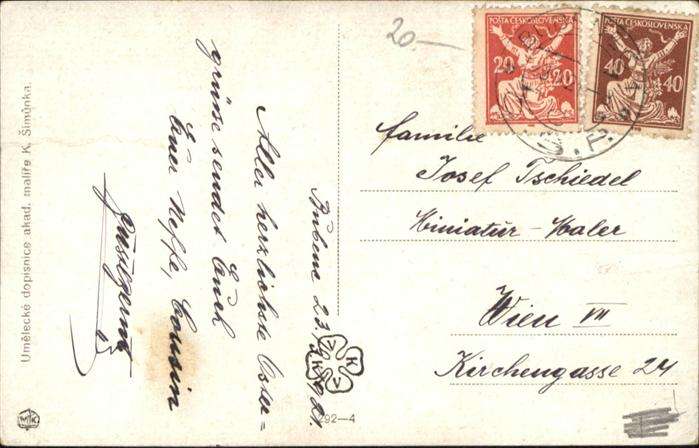 20.—
POŠTA ČESKOSLOVENSKÁ
20 20
POŠTA ČESKOSLOVENSKÁ
40 40
Familie
Josef Tschiedel
Miniatur-Maler
Wien VII
Kirchengasse 24
Bubenc 23.
Aller herzlichste Oster-
grüsse sendet Euch
Euer Neffe, Cousin
Umělecké dopisnice akad. malíře K. Šimůnka.
92—4